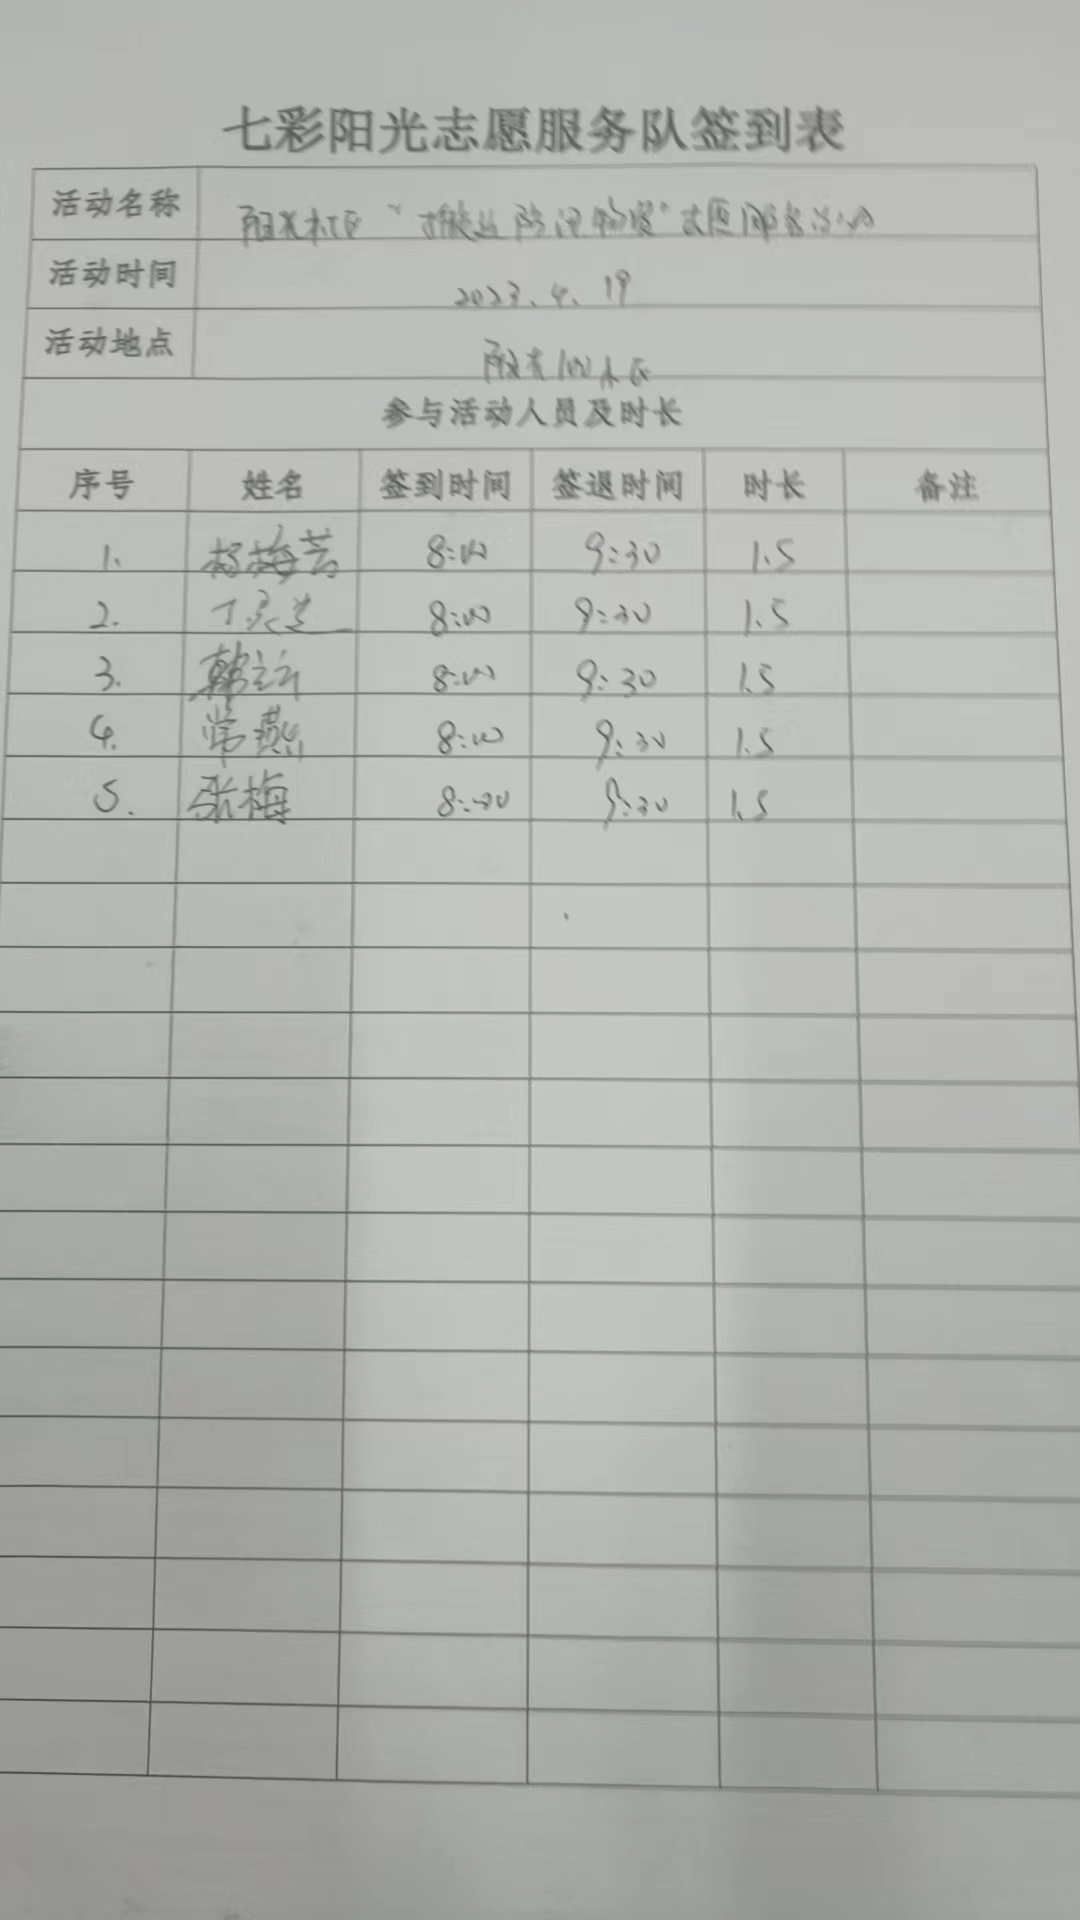 七彩阳光志愿服务队签到表
活动名称 阳光社区“搬运防汛物资”志愿服务活动
活动时间 2023.4.19
活动地点 阳光100小区
参与活动人员及时长
序号 姓名 签到时间 签退时间 时长 备注
1. 杨梅芳 8:00 9:30 1.5
2. 8:00 9:30 1.5
3. 韩 8:00 9:30 1.5
4. 常燕 8:00 9:30 1.5
5. 张梅 8:00 9:30 1.5